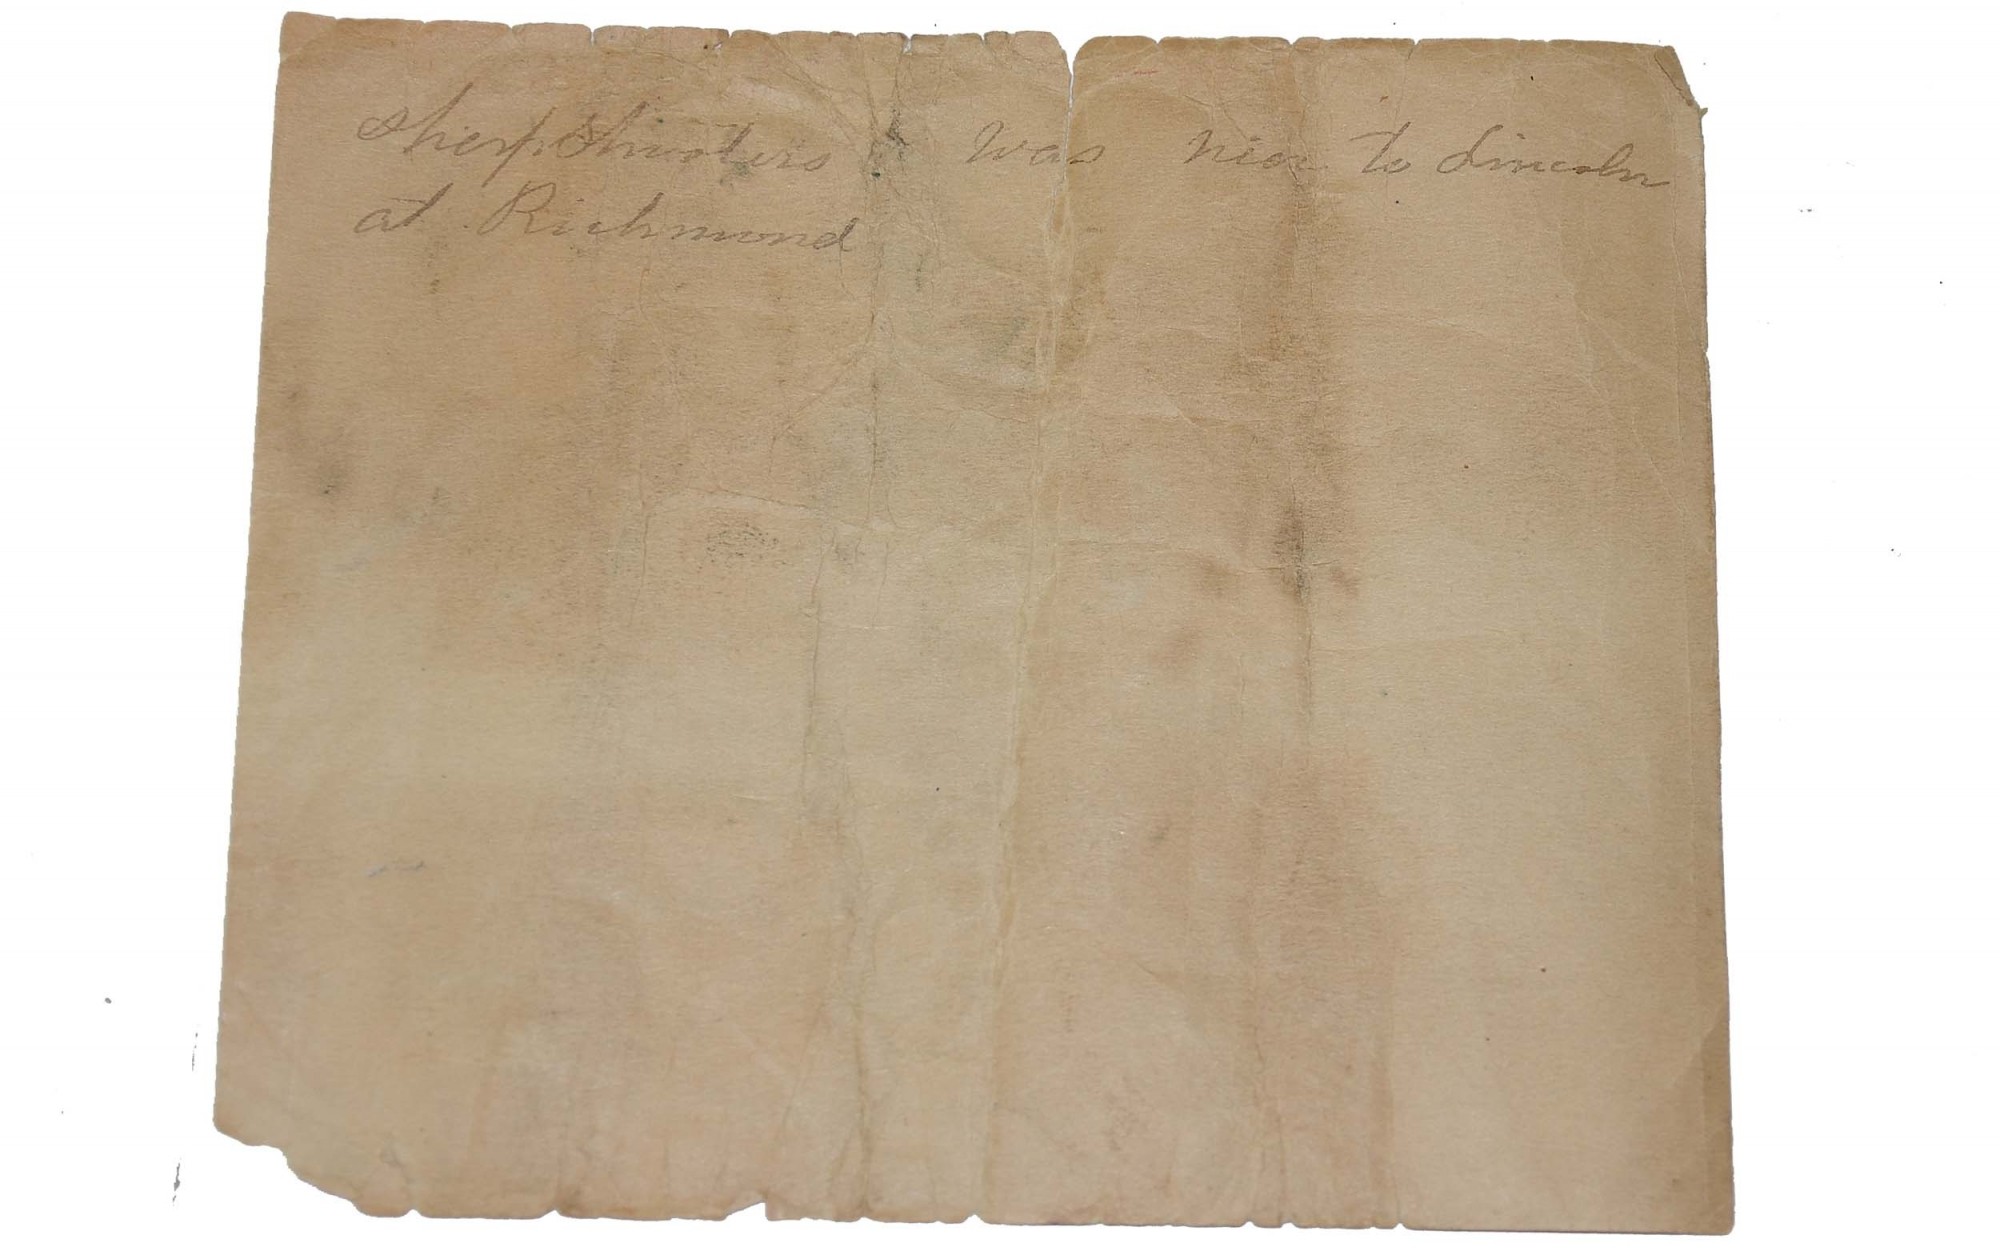 sherpshooters was near to Lincoln
at Richmond